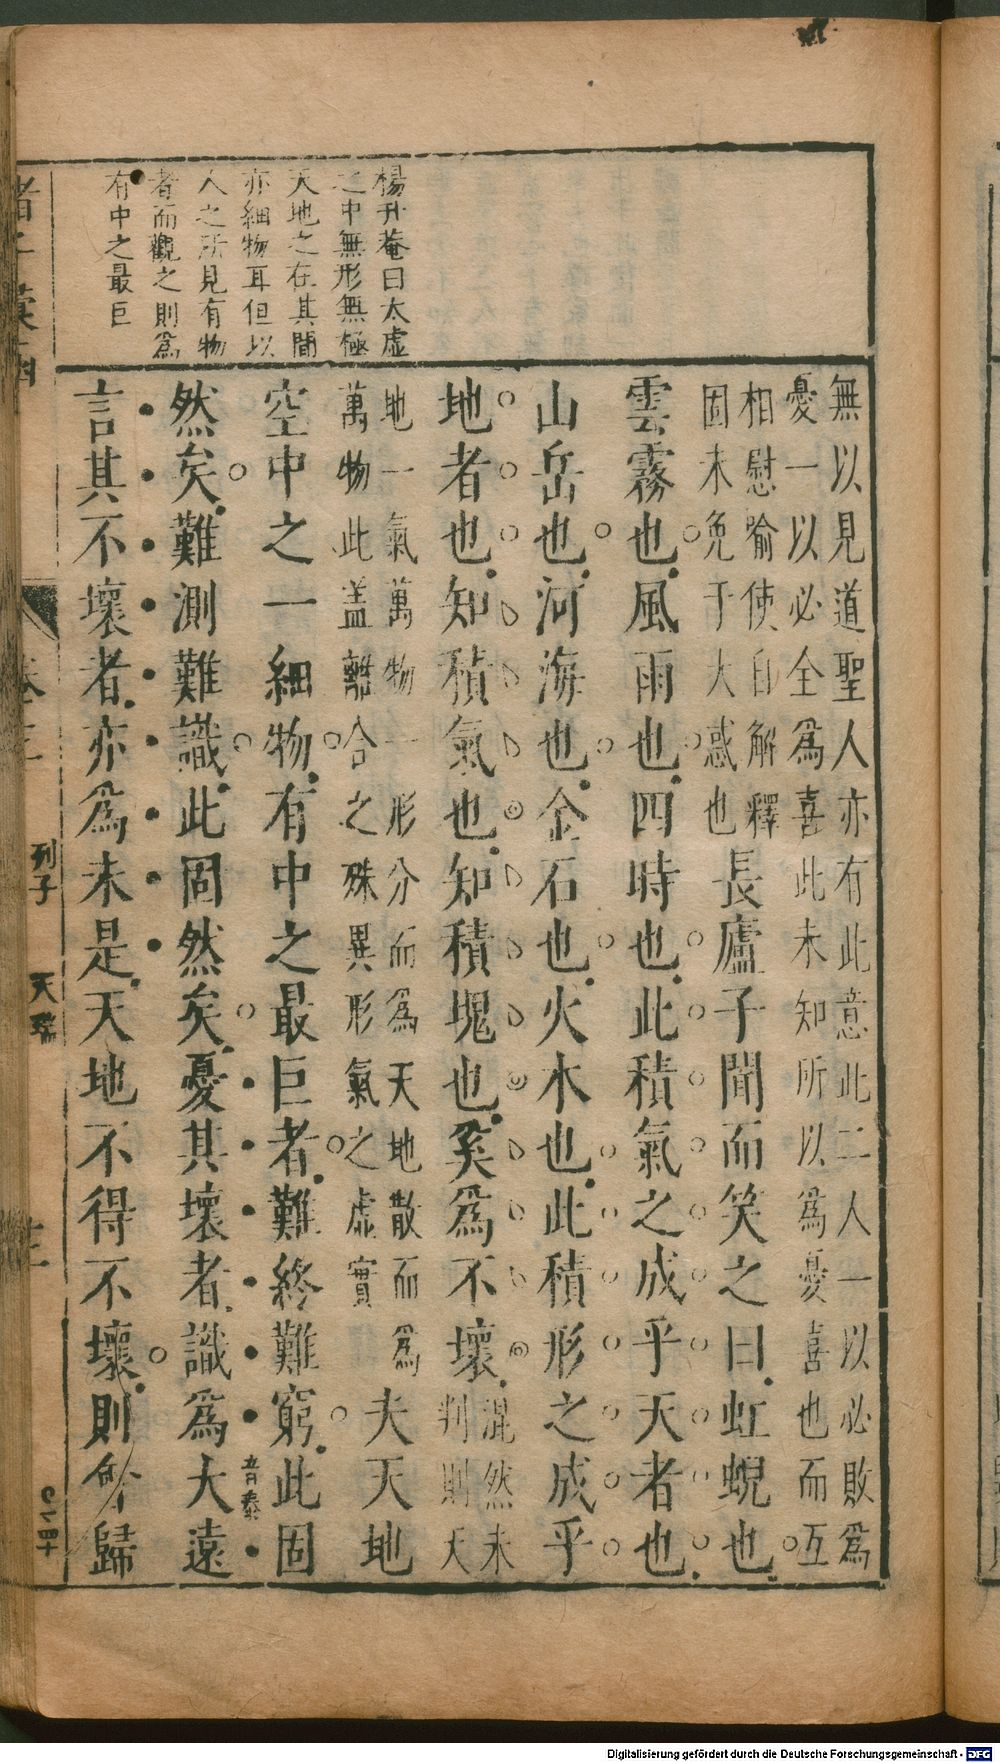 楊升菴曰太虛
之中無形無極
天地之在其間
亦細物耳但以
人之所見有物
者而觀之則爲
有中之最巨
無以見道聖人亦有此意此二人一以必敗爲
憂一以必全爲喜此未知所以爲憂喜也而互
相慰喻使自解釋
固未免于大惑也
長廬子聞而笑之曰虹蜺也
雲霧也風雨也四時也此積氣之成乎天者也
山岳也河海也金石也火木也此積形之成乎
地者也知積氣也知積塊也奚爲不壞
混然未
判則天
地一氣萬物一形分而爲天地散而爲
萬物此盖離合之殊異形氣之虛實
夫天地
空中之一細物有中之最巨者難終難窮此固
然矣難測難識此固然矣憂其壞者識爲大遠
音泰
言其不壞者亦爲未是天地不得不壞則會歸
列子
天瑞
Digitalisierung gefördert durch die Deutsche Forschungsgemeinschaft - DFG